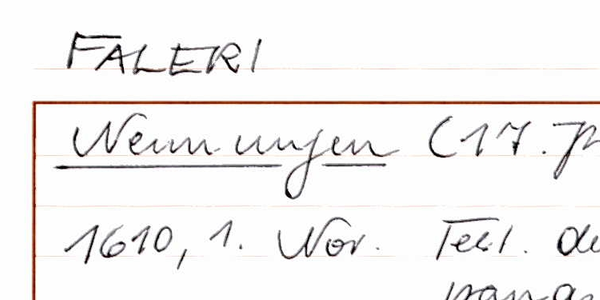 FALERI
Nennungen (17. Jh
1610, 1. Nov. Test. de